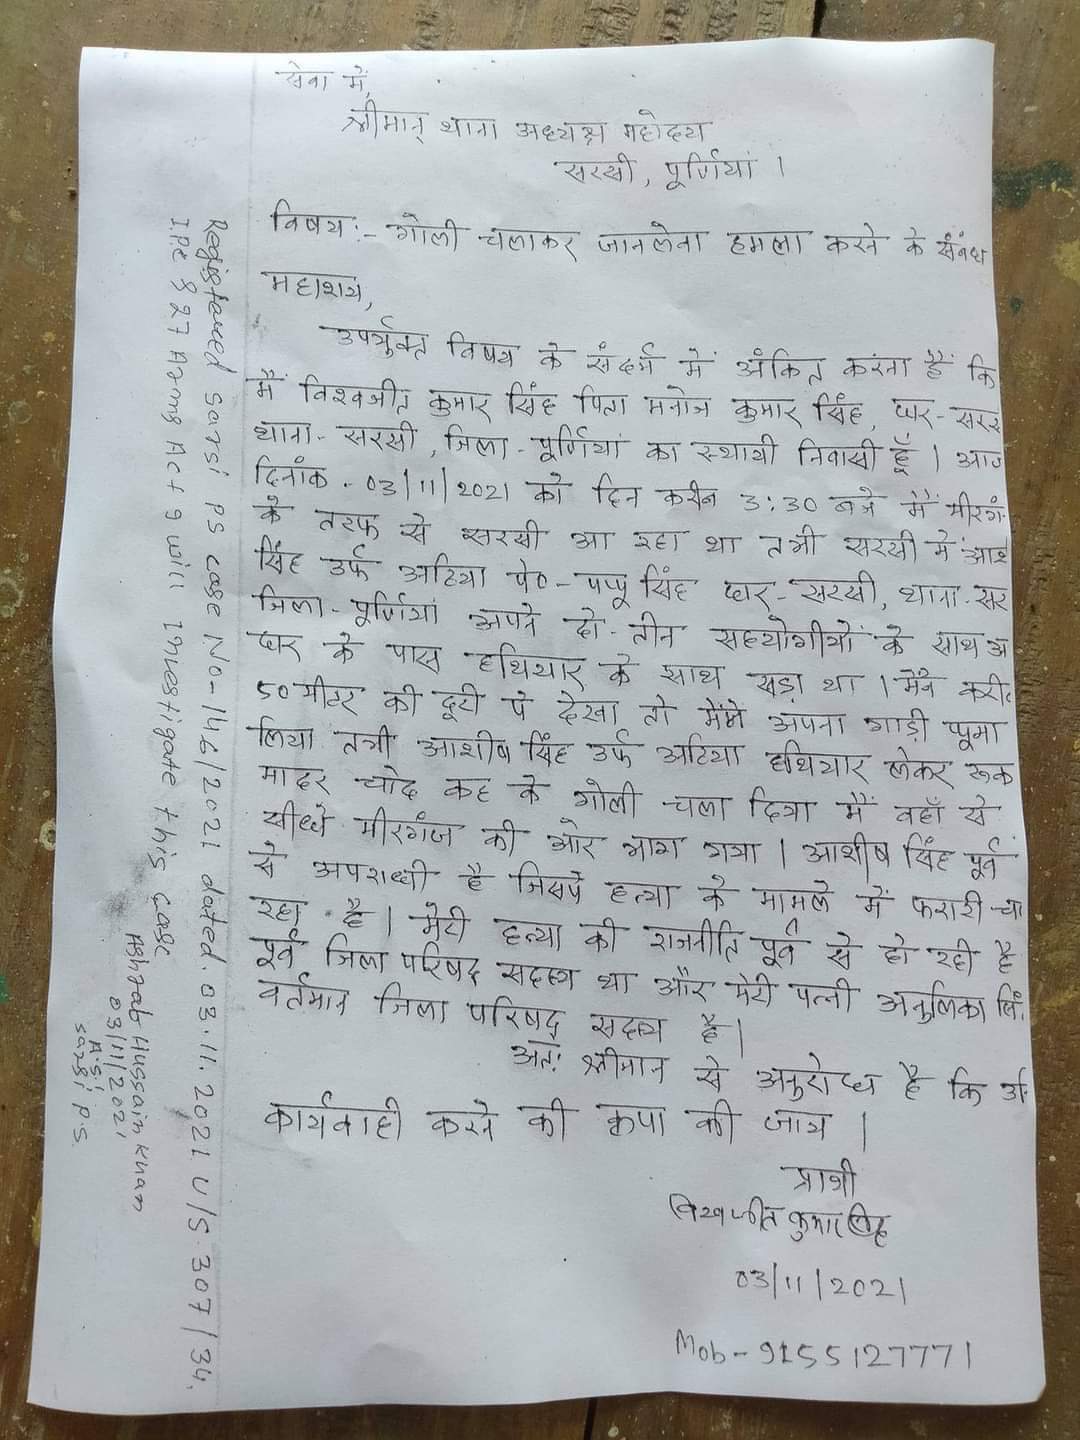 सेवा में,
श्रीमान् थाना अध्यक्ष महोदय
सरसी, पूर्णियां ।
विषय:- गोली चलाकर जानलेवा हमला करने के संबंध
महाशय,
उपर्युक्त विषय के संदर्भ में अंकित करना है कि
मैं विश्वजीत कुमार सिंह पिता मनोज कुमार सिंह, घर-सरस
थाना-सरसी, जिला-पूर्णियां का स्थायी निवासी हूँ । आज
दिनांक . 03/11/2021 को दिन करीब 3:30 बजे मैं मीरगं
के तरफ से सरसी आ रहा था तभी सरसी में आशी
सिंह उर्फ अटिया पे०-पप्पू सिंह घर-सरसी, थाना-सर
जिला-पूर्णियां अपने दो-तीन सहयोगीयों के साथ अ
घर के पास हथियार के साथ खड़ा था । मैंने करीब
50 मीटर की दूरी पे देखा तो मैंने अपना गाड़ी घूमा
लिया तभी आशीष सिंह उर्फ अटिया हथियार लेकर रूक
मादर चोद कह के गोली चला दिया मैं वहाँ से
सीधे मीरगंज की ओर भाग गया । आशीष सिंह पूर्व
से अपराधी है जिसपे हत्या के मामले में फरारी चा
रहा है । मेरी हत्या की राजनीति पूर्व से हो रही है
पूर्व जिला परिषद सदस्य था और मेरी पत्नी अनुलिका सिं
वर्तमान जिला परिषद् सदस्य है ।
अतः श्रीमान से अनुरोध है कि उ
कार्यवाही करने की कृपा की जाय ।
प्रार्थी
विश्वजीत कुमार सिंह
03/11/2021
Mob-9155127771
Registared Sarsi PS Case No-146/2021 dated.03.11.2021 U/S.307/34.
I.P.C § 27 Arms Act 9 will investigate this case
Ashrab Hussain Khan
03/11/2021
A.S.I
Sarsi P.S.